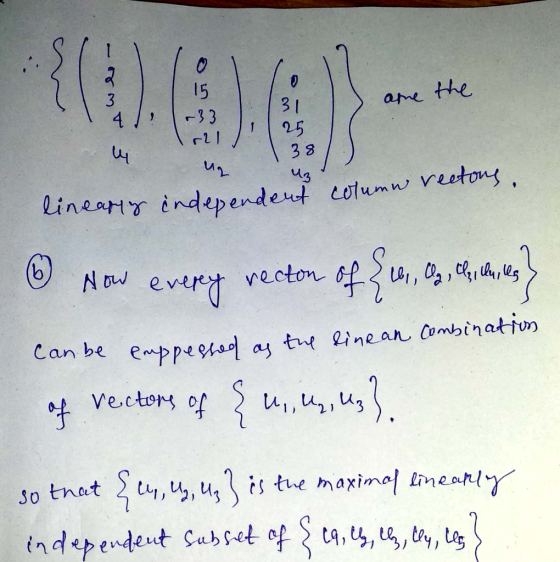 ∴ { (1 2 3 4), (0 15 -33 -21), (0 31 25 38) } are the
u1 u2 u3
linearly independent column vectors.
(b) Now every vector of { u1, u2, u3, u4, u5 }
can be exppessed as the linear combination
of vectors of { u1, u2, u3 }.
so that { u1, u2, u3 } is the maximal linearly
independent subset of { u1, u2, u3, u4, u5 }